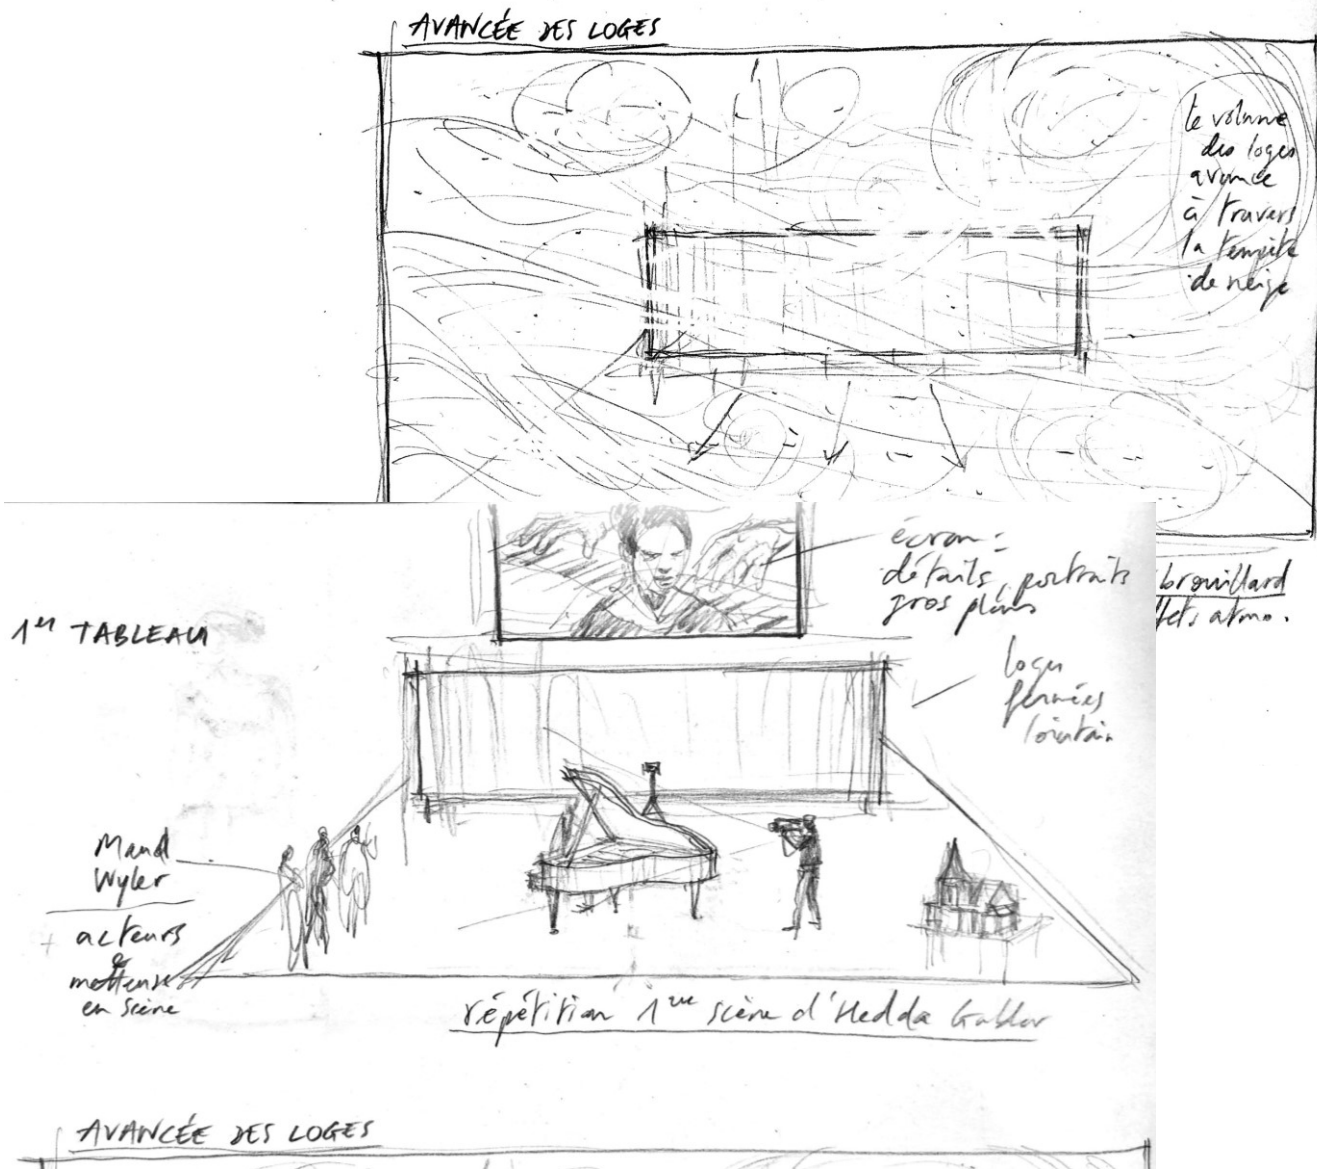 AVANCÉE DES LOGES
le volume
des loges
avance
à travers
la tempête
de neige
brouillard
ffets atmo.
écran :
détails, portraits
gros plans
1er TABLEAU
loges
fermées
lointain
Maud
Wyler
+ acteurs
&
metteuse
en scène
répétition 1ère scène d'Hedda Gabler
AVANCÉE DES LOGES